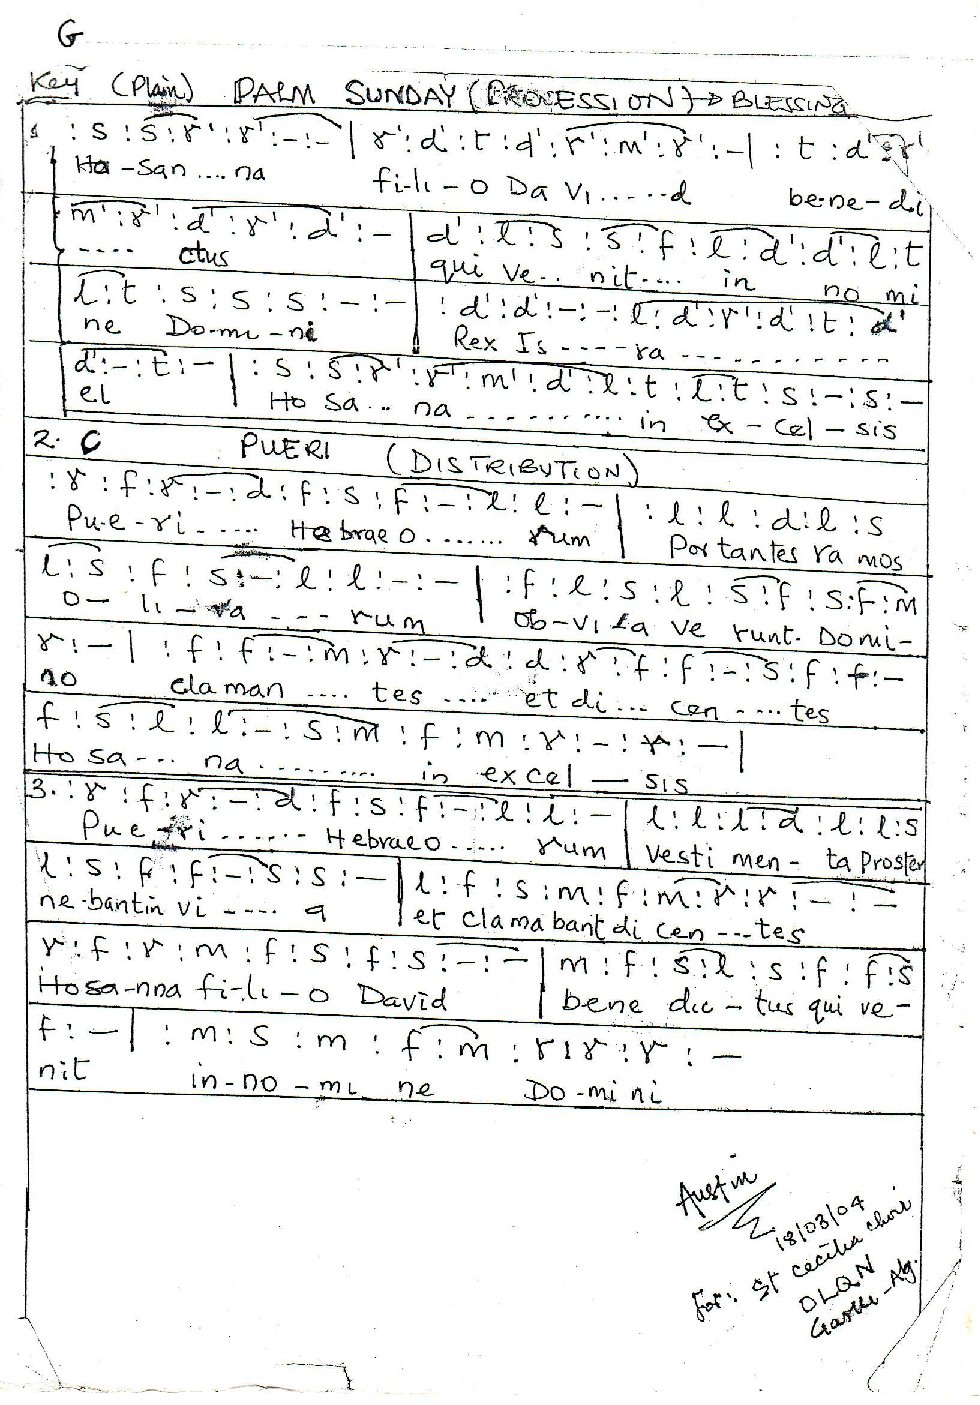 G
Key (Plain) PALM SUNDAY (PROCESSION) → BLESSING
1 : s : s : r' : r' : - : - | r' : d' : t : d' : r' : m' : r' : - | : t : d' : r'
Ho -san .... na fi-li-O Da Vi ...... d be-ne-di
m' : r' : d' : r' : d' : - | d' : l : s : s : f : l : d' : d' : l : t
.... ctus qui ve .. nit .... in no mi
l : t : s : s : s : - : - | : d' : d' : - : - : l : d' : r' : d' : t : d'
ne Do-mi-ni Rex Is ---- ra - - - - - - - - - - -
d' : - : t : - | : s : s : r' : r' : m' : d' : l : t : l : t : s : - : s : -
el Ho sa ... na - - - - - - - - - - - in ex - cel - sis
2. C PUERI (DISTRIBUTION)
: r : f : r : - : d : f : s : f : - : l : l : - | : l : l : d : l : s
Pu-e-ri ...... Hebrae o ........ rum Portantes ra mos
l : s : f : s : - : l : l : - : - | : f : l : s : l : s : f : s : f : m
o- li - va - - - rum ob-vi la ve runt. Domi-
r : - | : f : f : - : m : r : - : d : d : r : f : f : - : s : f : f : -
no claman .... tes .... et di ... cen .... tes
f : s : l : l : - : s : m : f : m : r : - : r : - |
Ho sa ... na .......... in excel — sis
3. : r : f : r : - : d : f : s : f : - : l : l : - | l : l : l : d : l : l : s
Pue-ri ....... Hebrae o ...... rum vesti men - ta Proster
l : s : f : f : - : s : s : - | l : f : s : m : f : m : r : r : - : -
ne-bantin vi ---- a et clamabant di cen ... tes
r : f : r : m : f : s : f : s : - : - | m : f : s : l : s : f : f : s
Hosa-nna fi-li-o David bene dic - tus qui ve-
f : - | : m : s : m : f : m : r : r : r : -
nit in-no-mi ne Do-mi ni
Austin
18/03/04
For: St cecilia choir
OLQN